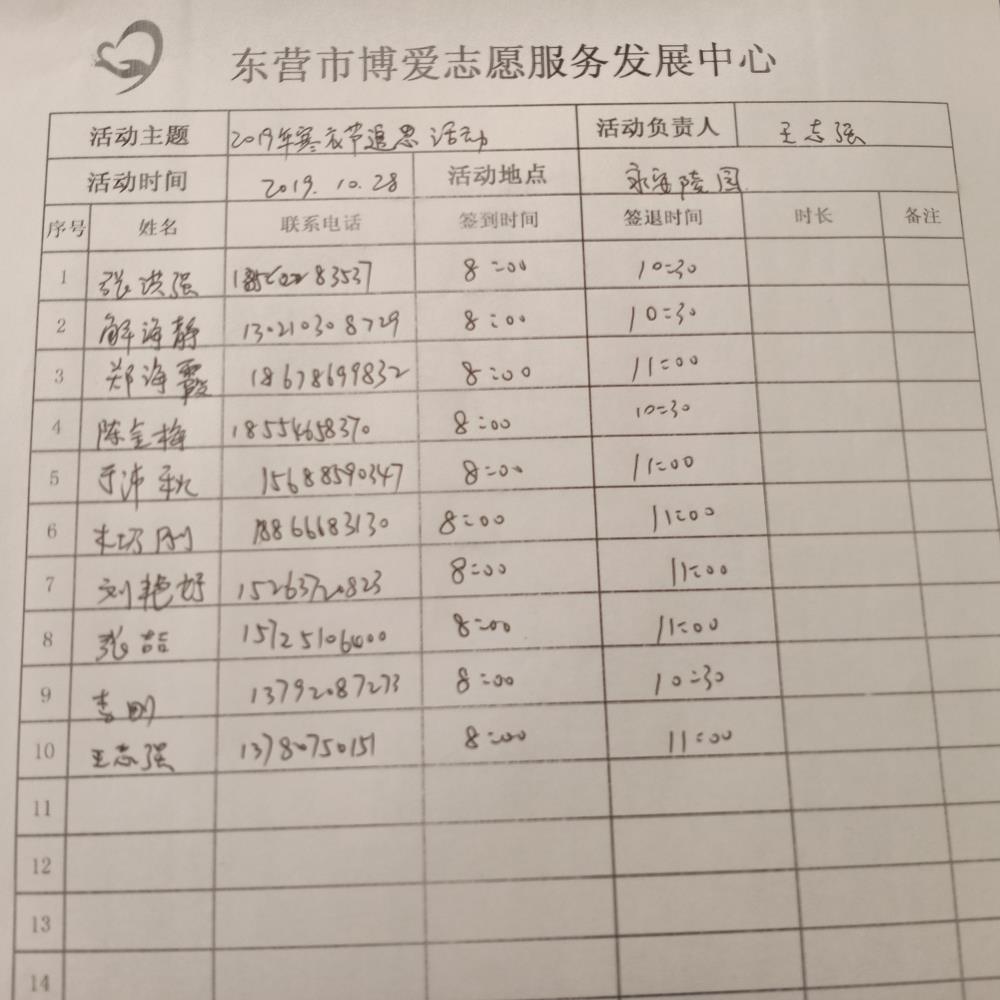 东营市博爱志愿服务发展中心
活动主题 2019年寒衣节追思活动 活动负责人 王志强
活动时间 2019.10.28 活动地点 永安陵园
序号 姓名 联系电话 签到时间 签退时间 时长 备注
1 张洪强 83537 8:00 10:30
2 解海静 130210308729 8:00 10:30
3 郑海霞 18678699832 8:00 11:00
4 陈金梅 18554658370 8:00 10:30
5 于沛 15688590347 8:00 11:00
6 18866683130 8:00 11:00
7 刘艳好 15263720823 8:00 11:00
8 张喆 8:00 11:00
9 李刚 13792087273 8:00 10:30
10 王志强 13780750151 8:00 11:00
11
12
13
14